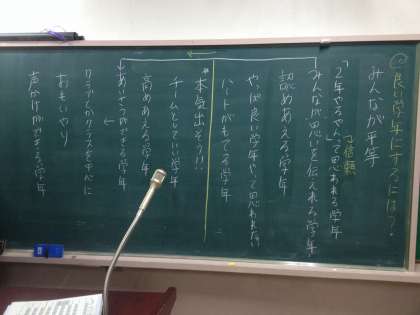 ◎良い学年にするには？
みんなが平等
「2年やるやんって思われる学年
→信頼
みんなが思いを伝えれる学年
認めあえる学年
やっぱ良い学年やって思われたい
ハートがもてる学年
*本気出そう!!
チームとしていい学年
高めあえる学年
あいさつができる学年
クラブとかクラスを中心に
おもいやり
声かけができる学年